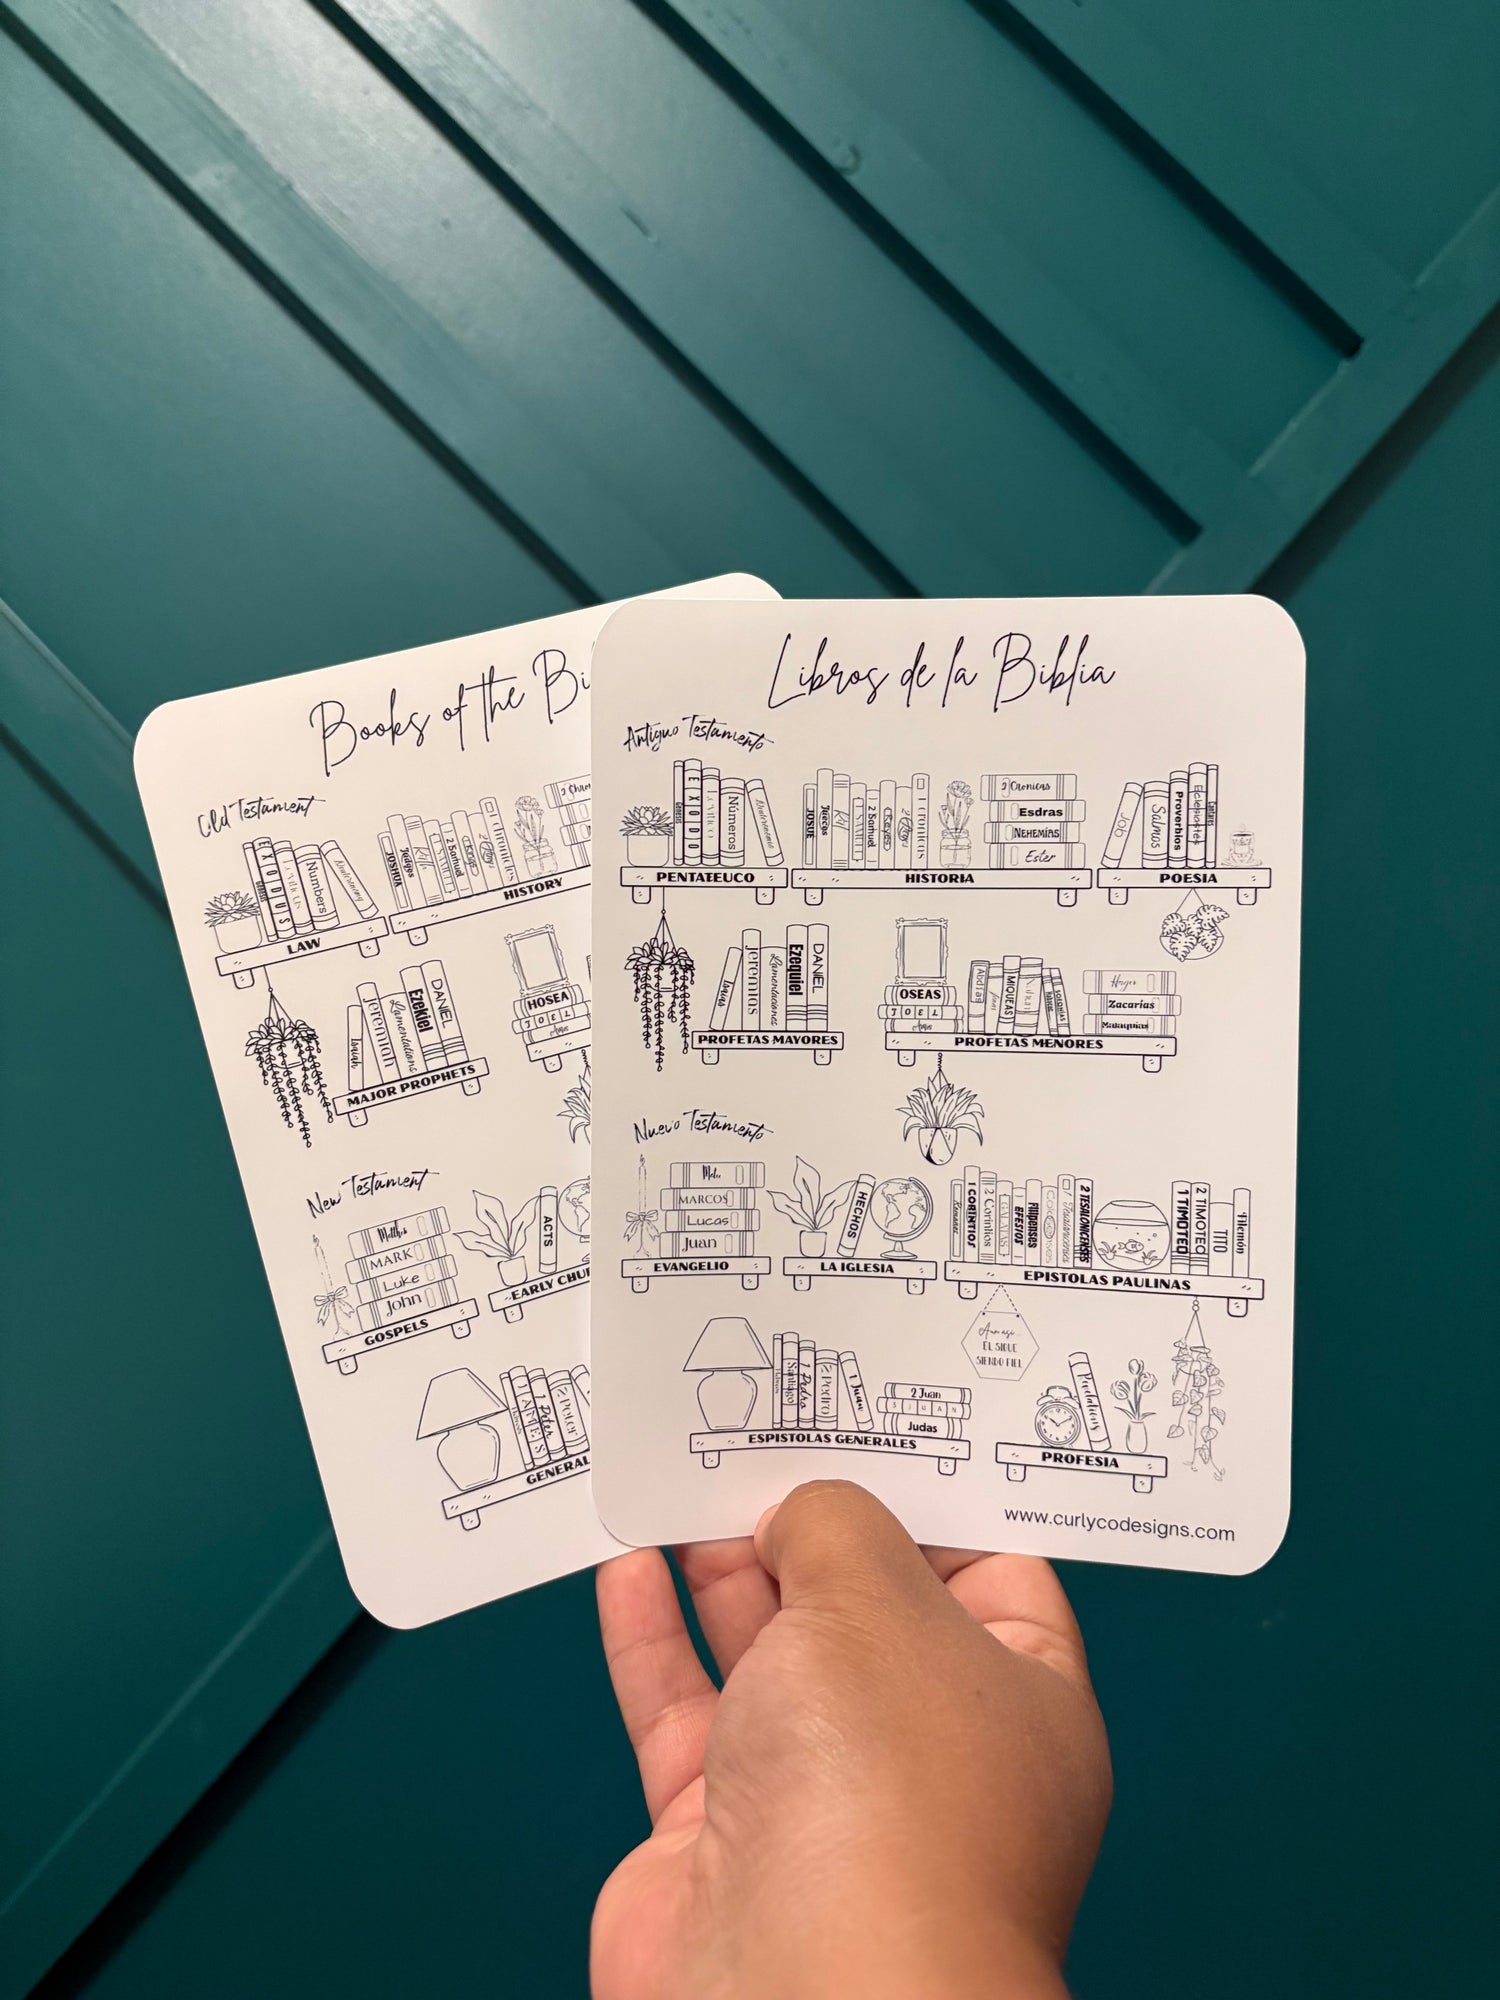 Books of the Bi
Old Testament
EXODUS
Leviticus
Numbers
Deuteronomy
LAW
JOSHUA
Judges
Ruth
1 SAMUEL
2 Samuel
1 Kings
2 Kings
1 Chronicles
2 Chron
HISTORY
Isaiah
Jeremiah
Lamentations
Ezekiel
DANIEL
MAJOR PROPHETS
HOSEA
JOEL
Amos
New Testament
Matthew
MARK
Luke
John
GOSPELS
ACTS
EARLY CHU
JAMES
1 Peter
2 PETER
GENERAL
Libros de la Biblia
Antiguo Testamento
Génesis
EXODO
Levítico
Números
PENTATEUCO
JOSUE
Jueces
Rut
1 SAMUEL
2 Samuel
1 Reyes
2 Reyes
1 Cronicas
2 Cronicas
Esdras
NEHEMÍAS
Ester
HISTORIA
Job
Salmos
Proverbios
Eclesiastés
Cantares
POESIA
Isaías
Jeremías
Lamentaciones
Ezequiel
DANIEL
PROFETAS MAYORES
OSEAS
JOEL
Amós
Abdías
MIQUEAS
Hageo
Zacarías
Malaquías
PROFETAS MENORES
Nuevo Testamento
Mateo
MARCOS
Lucas
Juan
EVANGELIO
HECHOS
LA IGLESIA
Romanos
1 CORINTIOS
2 Corintios
GALATAS
EFESIOS
Filipenses
COLOSENSES
1 Tesalonicenses
2 TESALONICENSES
1 TIMOTEO
2 TIMOTEO
TITO
Filemón
EPISTOLAS PAULINAS
Aun asi
EL SIGUE
SIENDO FIEL
Hebreos
Santiago
1 Pedro
2 PEDRO
1 Juan
2 Juan
3 JUAN
Judas
ESPISTOLAS GENERALES
Revelations
PROFESIA
www.curlycodesigns.com